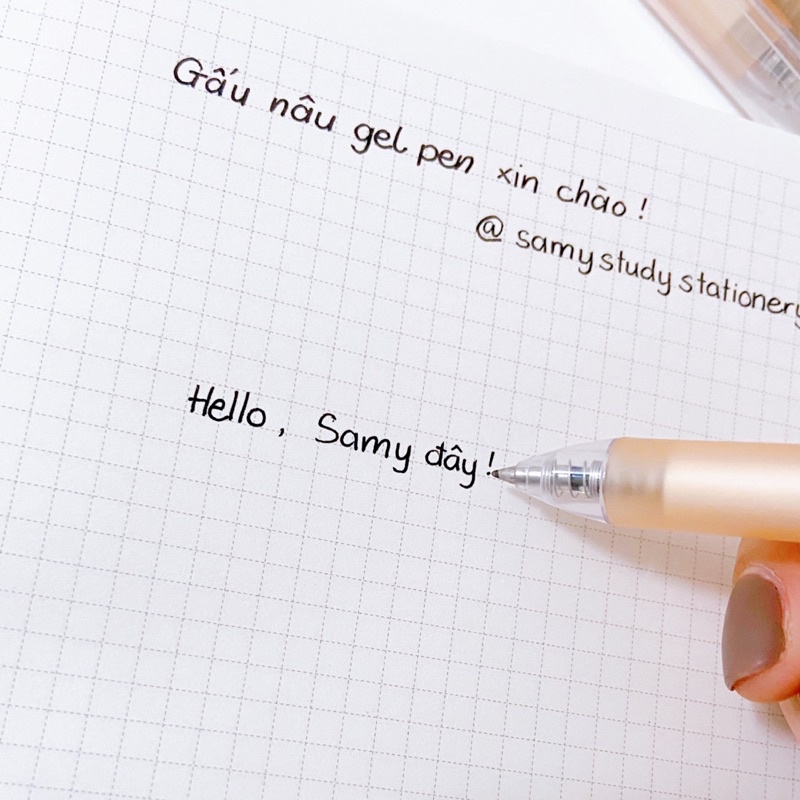 Gấu nâu gel pen xin chào !
@ samystudystationery
Hello, Samy đây !